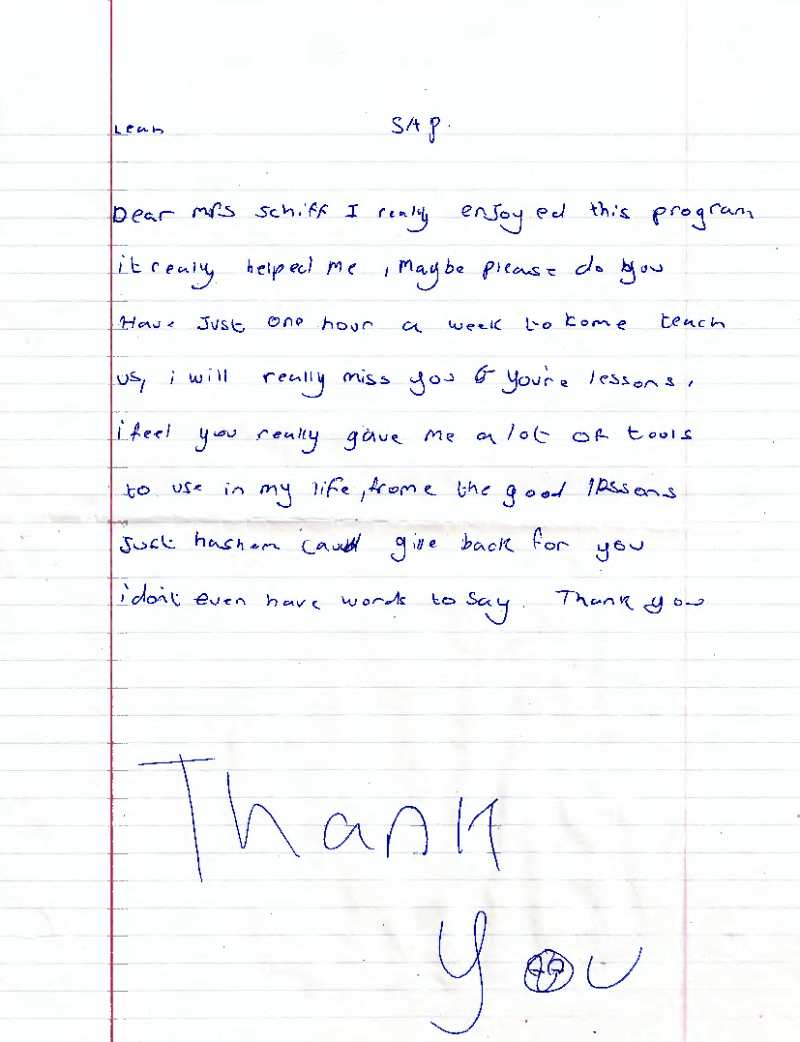 Leah SAP.
Dear mrs schiff I really enjoyed this program
it really helped me , maybe please do you
Have just one hour a week to kome teach
us, i will really miss you & you're lessons,
i feel you really gave me a lot of tools
to use in my life, frome the good lessons
Just hashem could give back for you
i don't even have words to say. Thank you
Thank
you